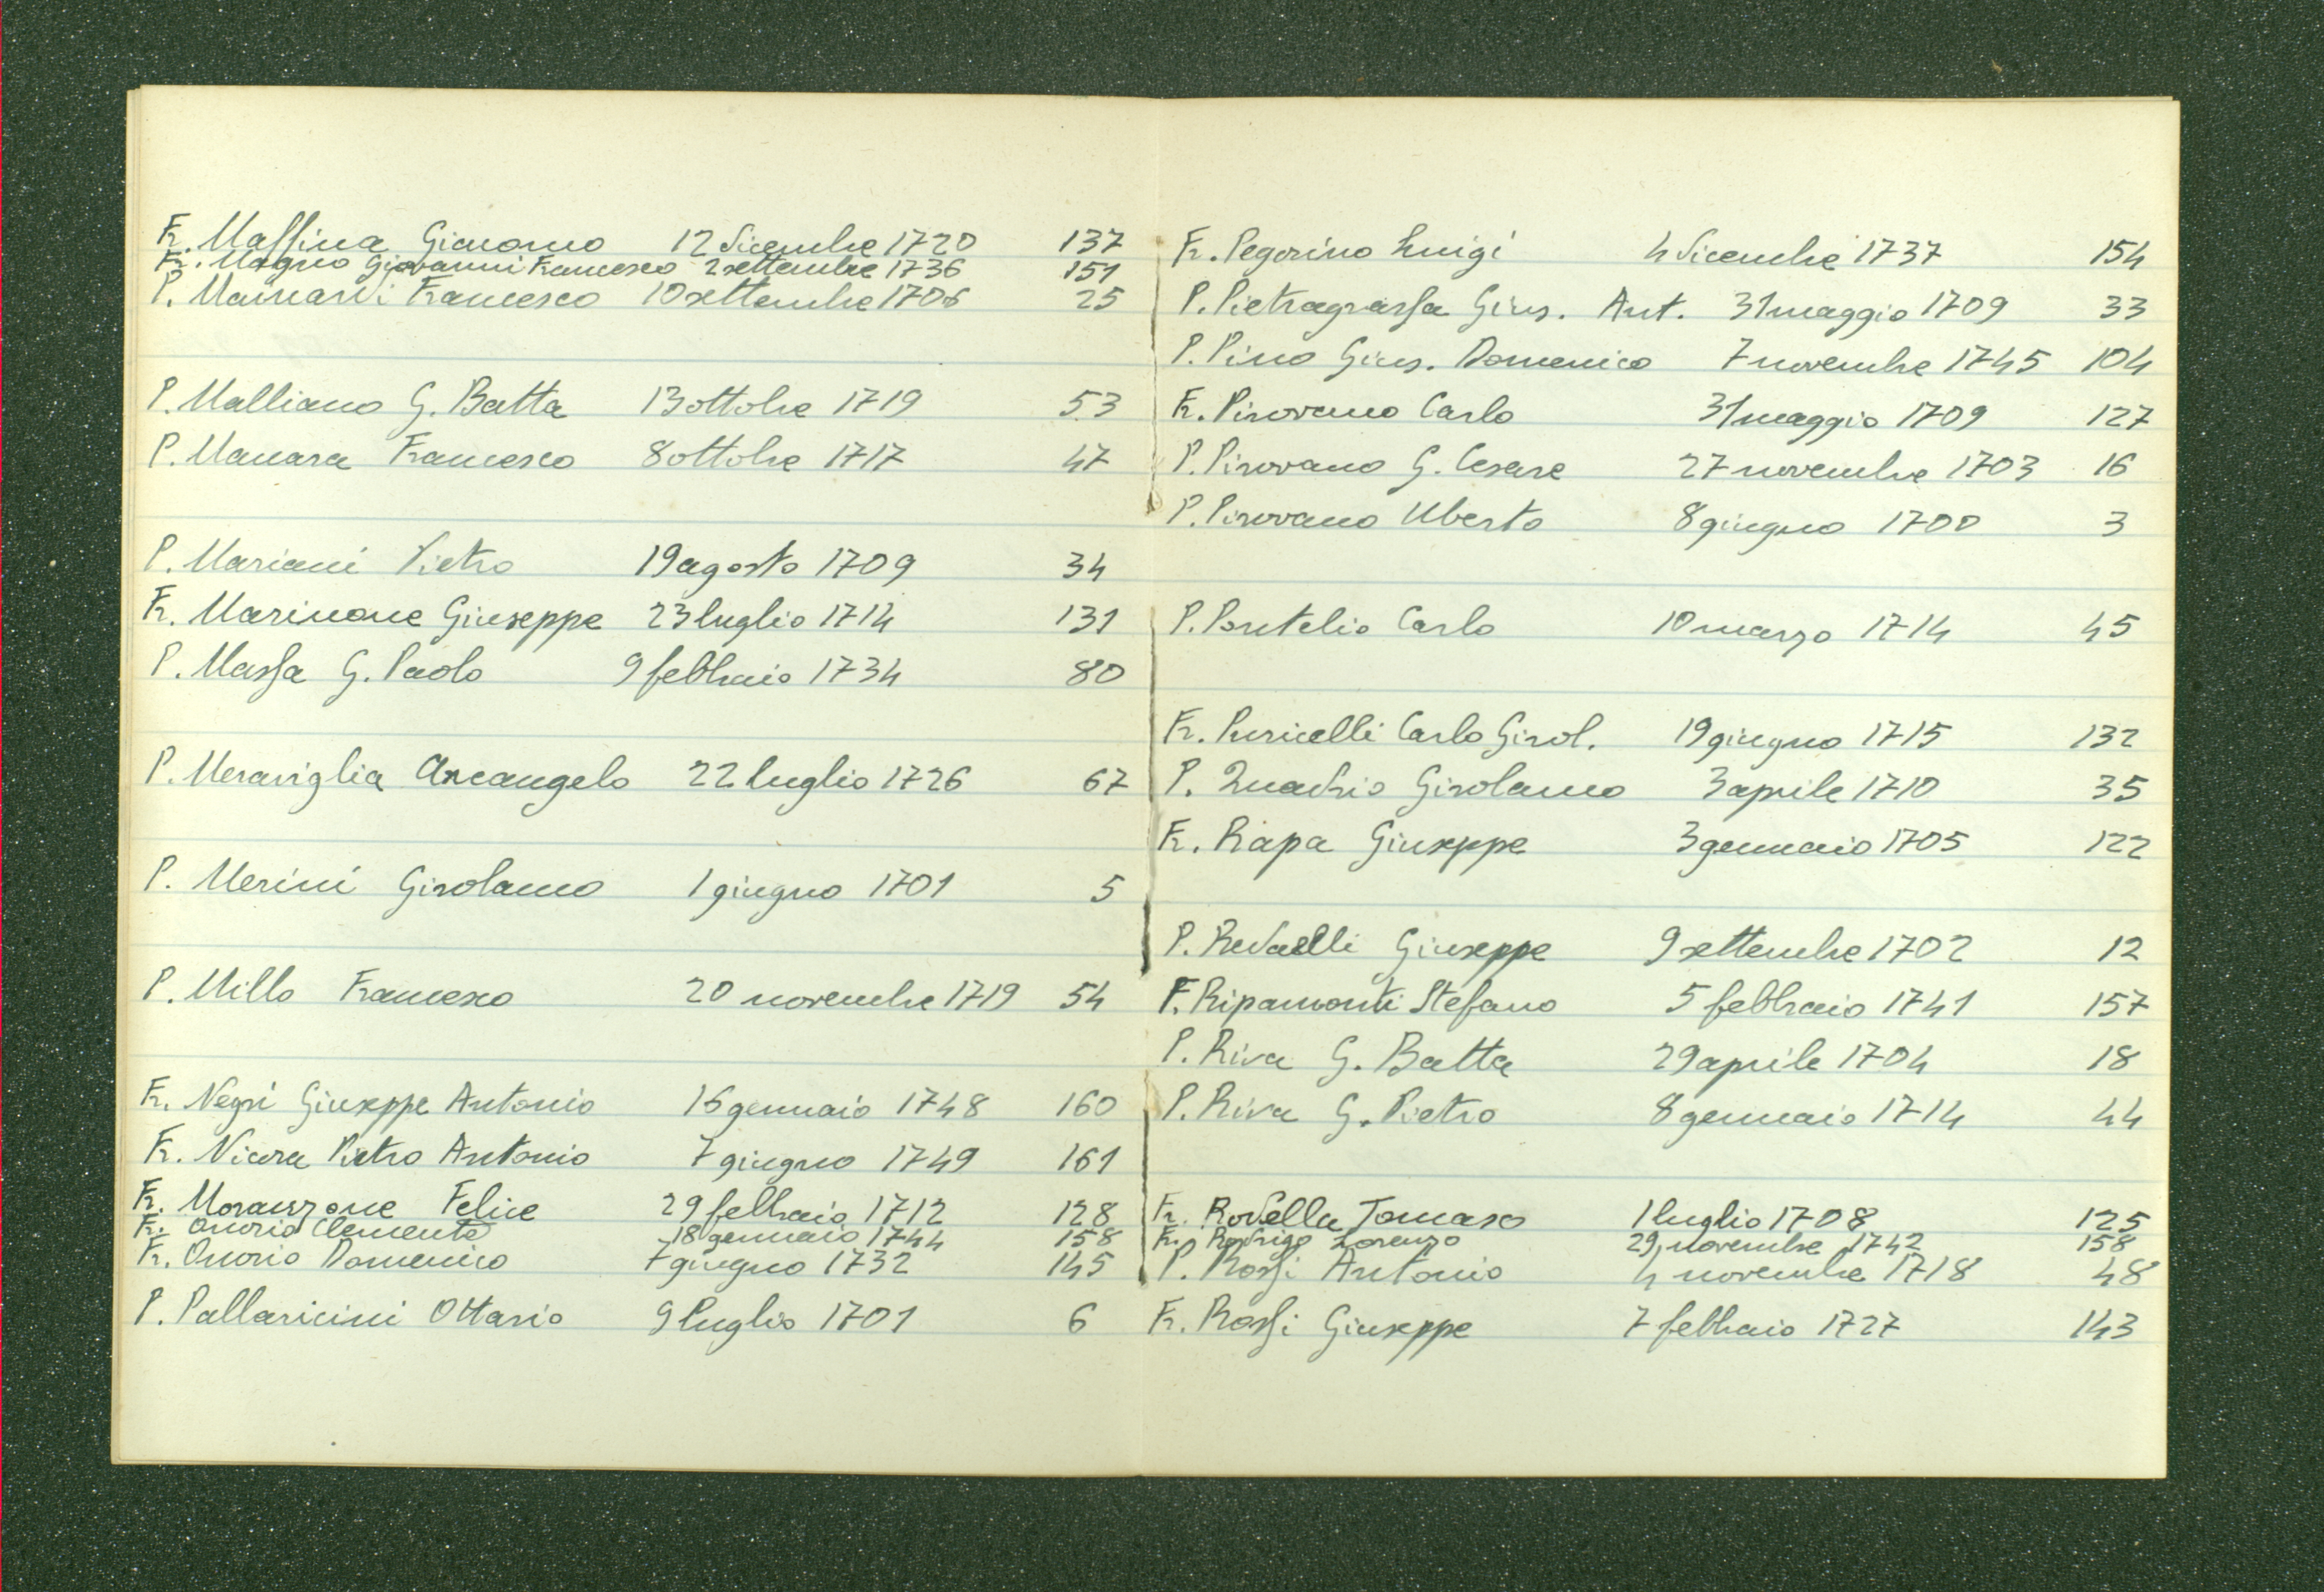 Fr. Maffina Giacomo 12 dicembre 1720 137
Fr. Magno Giovanni Francesco 2 settembre 1736 151
P. Mainardi Francesco 10 settembre 1706 25
P. Malliano G. Batta 13 ottobre 1719 53
P. Manara Francesco 8 ottobre 1717 47
P. Mariani Pietro 19 agosto 1709 34
Fr. Marinone Giuseppe 23 luglio 1714 131
P. Massa G. Paolo 9 febbraio 1734 80
P. Meraviglia Arcangelo 22 luglio 1726 67
P. Merini Girolamo 1 giugno 1701 5
P. Millo Francesco 20 novembre 1719 54
Fr. Negri Giuseppe Antonio 16 gennaio 1748 160
Fr. Nicora Pietro Antonio 7 giugno 1749 161
Fr. Moranzone Felice 29 febbraio 1712 128
Fr. Onorio Clemente 18 gennaio 1744 158
Fr. Onorio Domenico 7 giugno 1732 145
P. Pallavicini Ottavio 9 luglio 1701 6
Fr. Pegorino Luigi 4 dicembre 1737 154
P. Pietragrassa Gius. Ant. 31 maggio 1709 33
P. Pino Gius. Domenico 7 novembre 1745 104
Fr. Pirovano Carlo 31 maggio 1709 127
P. Pirovano G. Cesare 27 novembre 1703 16
P. Pirovano Uberto 8 giugno 1700 3
P. Portelio Carlo 10 marzo 1714 45
Fr. Puricelli Carlo Girol. 19 giugno 1715 132
P. Quadrio Girolamo 3 aprile 1710 35
Fr. Rapa Giuseppe 3 gennaio 1705 122
P. Redaelli Giuseppe 9 settembre 1702 12
F. Ripamonti Stefano 5 febbraio 1741 157
P. Riva G. Batta 29 aprile 1704 18
P. Riva G. Pietro 8 gennaio 1714 44
Fr. Rodella Tomaso 1 luglio 1708 125
Fr. Rodrigo Lorenzo 29 novembre 1742 158
P. Rossi Antonio 4 novembre 1718 48
Fr. Rossi Giuseppe 7 febbraio 1727 143